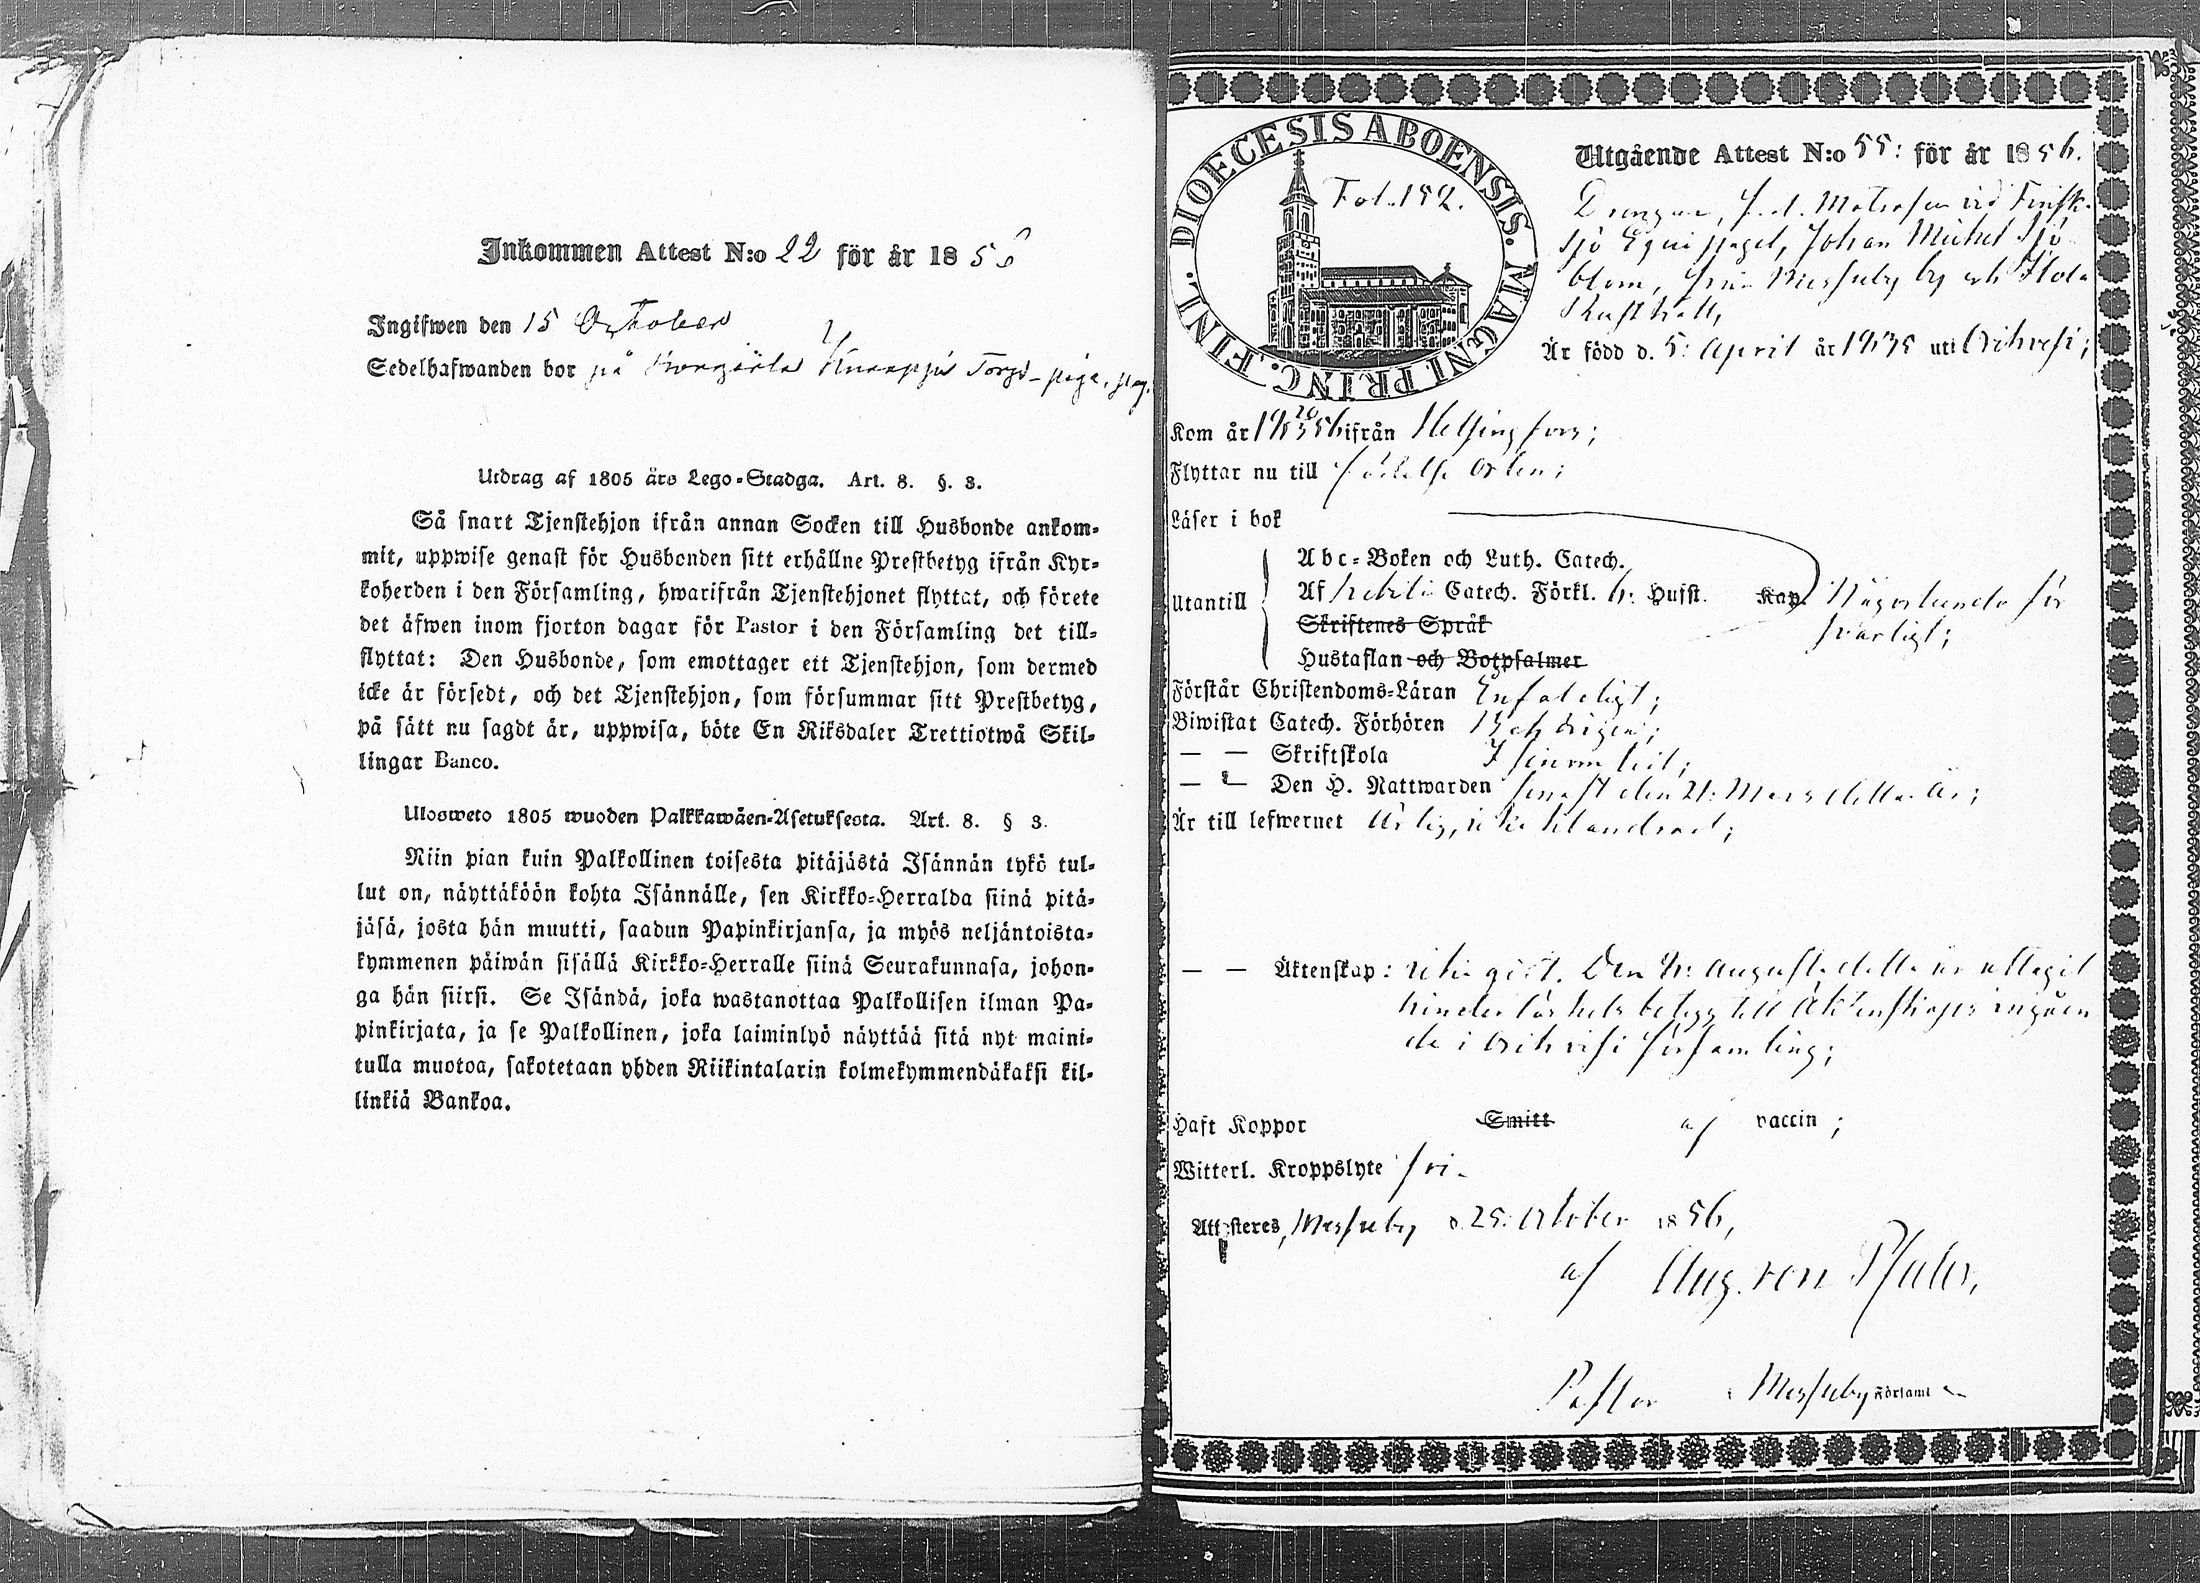 Inkommen Attest N:o 22 för år 1856
Ingifwen den 15 October
Sedelhafwanden bor på
Utdrag af 1805 års Lego-Stadga. Art. 8. §. 3.
Så snart Tjenstehjon ifrån annan Socken till Husbonde ankom-
mit, uppwise genast för Husbonden sitt erhållne Prestbetyg ifrån Kyr-
koherden i den Församling, hwarifrån Tjenstehjonet flyttat, och förete
det äfwen inom fjorton dagar för Pastor i den Församling det till-
flyttat: Den Husbonde, som emottager ett Tjenstehjon, som dermed
icke är försedt, och det Tjenstehjon, som försummar sitt Prestbetyg,
på sätt nu sagdt är, uppwisa, böte En Riksdaler Trettiotwå Skil-
lingar Banco.
Ulosweto 1805 wuoden Palkkawäen-Asetuksesta. Art. 8. § 3.
Niin pian kuin Palkollinen toisesta pitäjästä Isännän tykö tul-
lut on, näyttäköön kohta Isännälle, sen Kirkko-Herralda siinä pitä-
jäsä, josta hän muutti, saadun Papinkirjansa, ja myös neljäntoista-
kymmenen päiwän sisällä Kirkko-Herralle siinä Seurakunnasa, johon-
ga hän siirsi. Se Isändä, joka wastanottaa Palkollisen ilman Pa-
pinkirjata, ja se Palkollinen, joka laiminlyö näyttää sitä nyt maini-
tulla muotoa, sakotetaan yhden Riikintalarin kolmekymmendäkaksi kil-
linkiä Bankoa.
DIOECESIS ABOENSIS. MAGNI PRINC. FINL.
Fol. 152.
Utgående Attest N:o 55: för år 1856.
Drängen, f.d. Matrosen vid Finsk.
Sjö Equipaget, Johan Michel Sjö
blom, från Messuby by och
Rusthåll,
Är född d. 5: April år 1835 uti Orihvesi;
Kom år 1856 ifrån Helsingfors;
Flyttar nu till födelse orten;
Läser i bok
Abc-Boken och Luth. Catech.
Utantill Af Catech. Förkl. Husst. Kap. Någorlunda för
svarligt;
Skriftenes Språk
Hustaflan och Botpsalmer
Förstår Christendoms-Läran Enfaldigt;
Biwistat Catech. Förhören Behörigen;
— — Skriftskola I sinom tid;
— — Den H. Nattwarden senast den 21: Mars detta år;
Är till lefwernet Ärlig, icke klandrad;
— — Äktenskap: icke gift. Den Augusti detta år uttagit
hinderlöshets betyg till Äktenskaps ingåen
de i Orihvesi församling;
Haft Koppor Smitt af vaccin;
Witterl. Kroppslyte fri.
Attesteres, Messuby d. 25: October 1856,
af Aug. von Pfaler,
Pastor i Messuby Församl